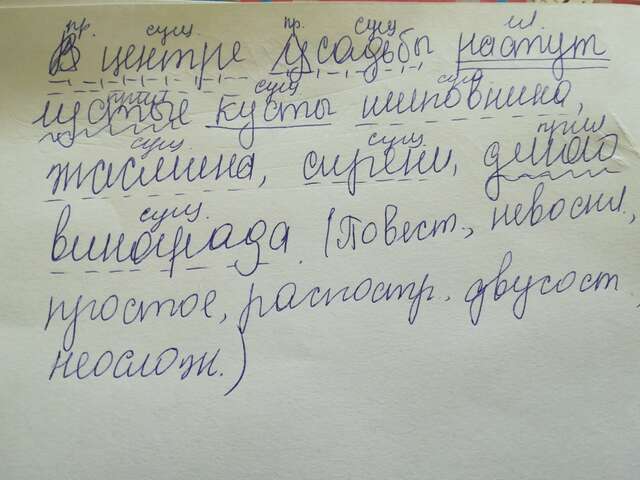 пр. сущ. пр. сущ гл.
В центре усадьбы растут
сущ сущ
густые кусты шиповника,
сущ. сущ. прил
жасмина, сирени, дикого
сущ.
винограда. (Повест., невоскл.,
простое, распостр. двусост,
неослож.)